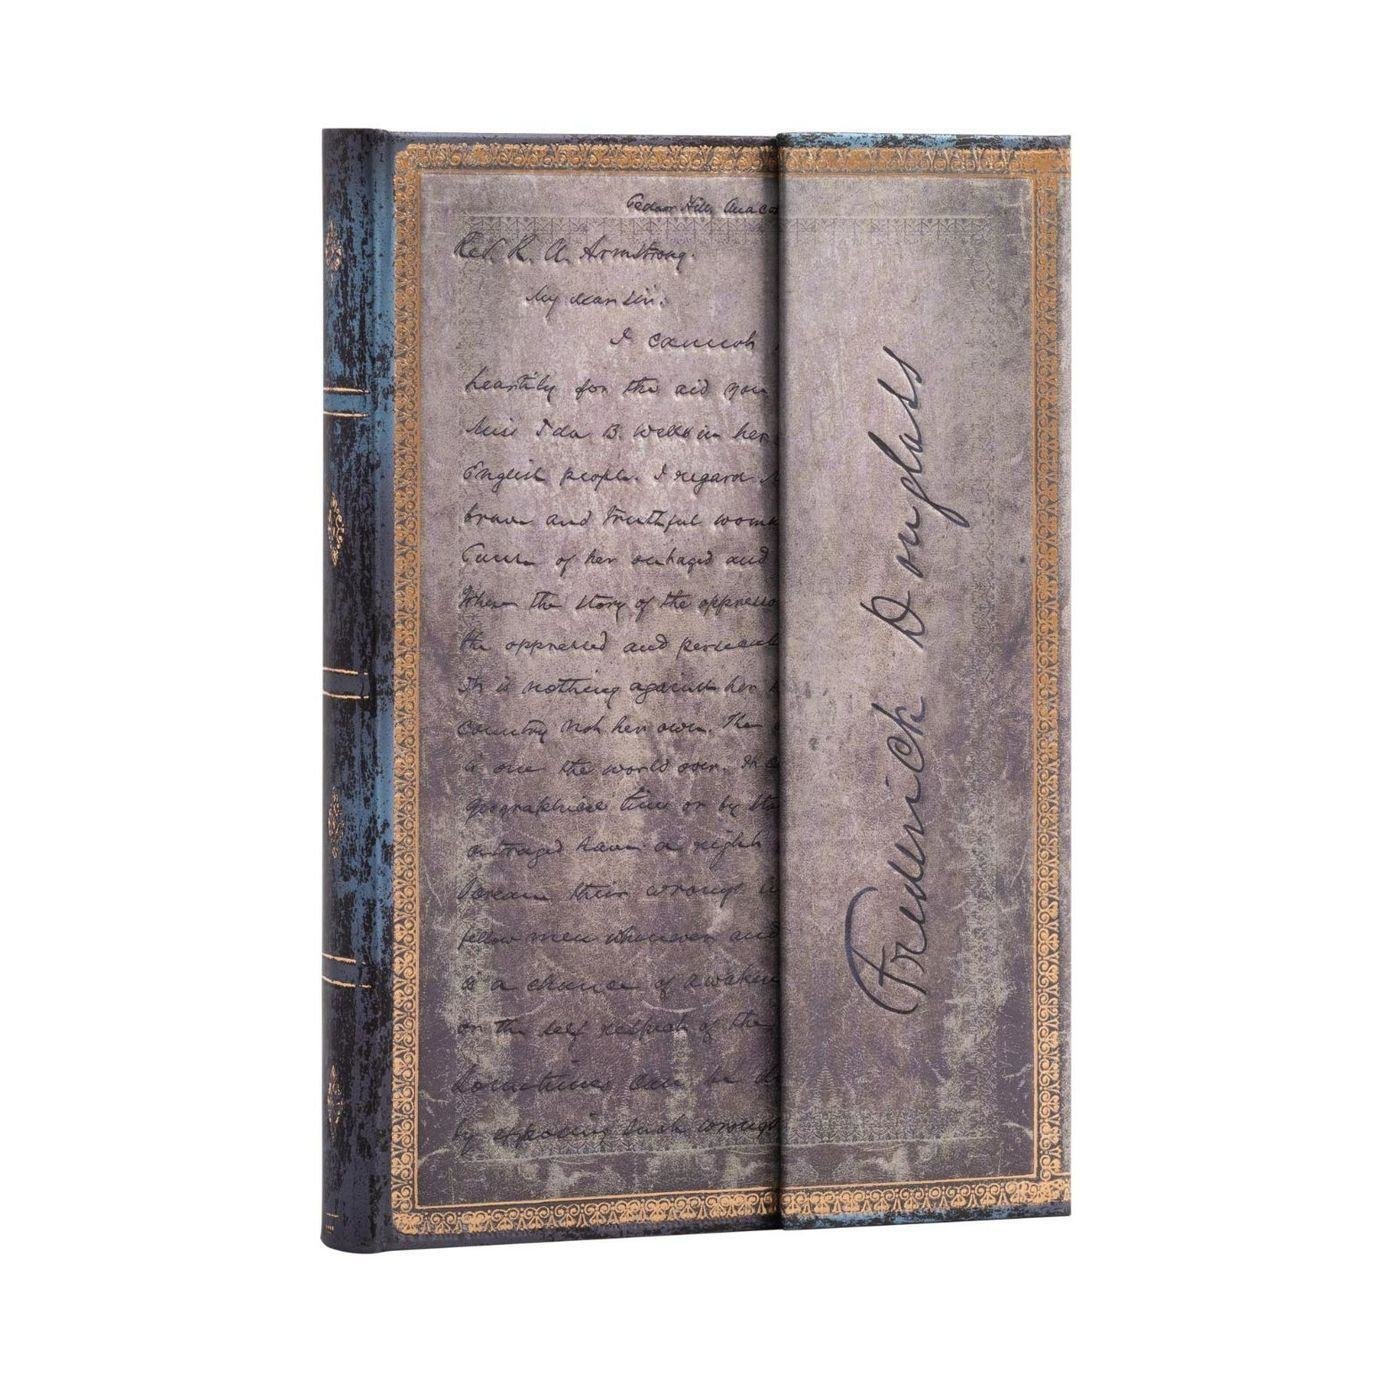 Cedar Hill, Anaco
Rev. R. A. Armstrong.
My dear Sir:
I cannot
heartily for the aid you
Miss Ida B. Wells in her
English people. I regard M
brave and truthful woma
Cause of her outraged and
When the story of the oppresso
the oppressed and persecute
It is nothing against her
country not her own. The
is one the world over.
geographical line or by
outraged have a right
scream their wrongs in
fellow men whenever and
is a chance of awaken
or the self respect of the
Something can be d
by exposing such wrongs
Frederick Douglass